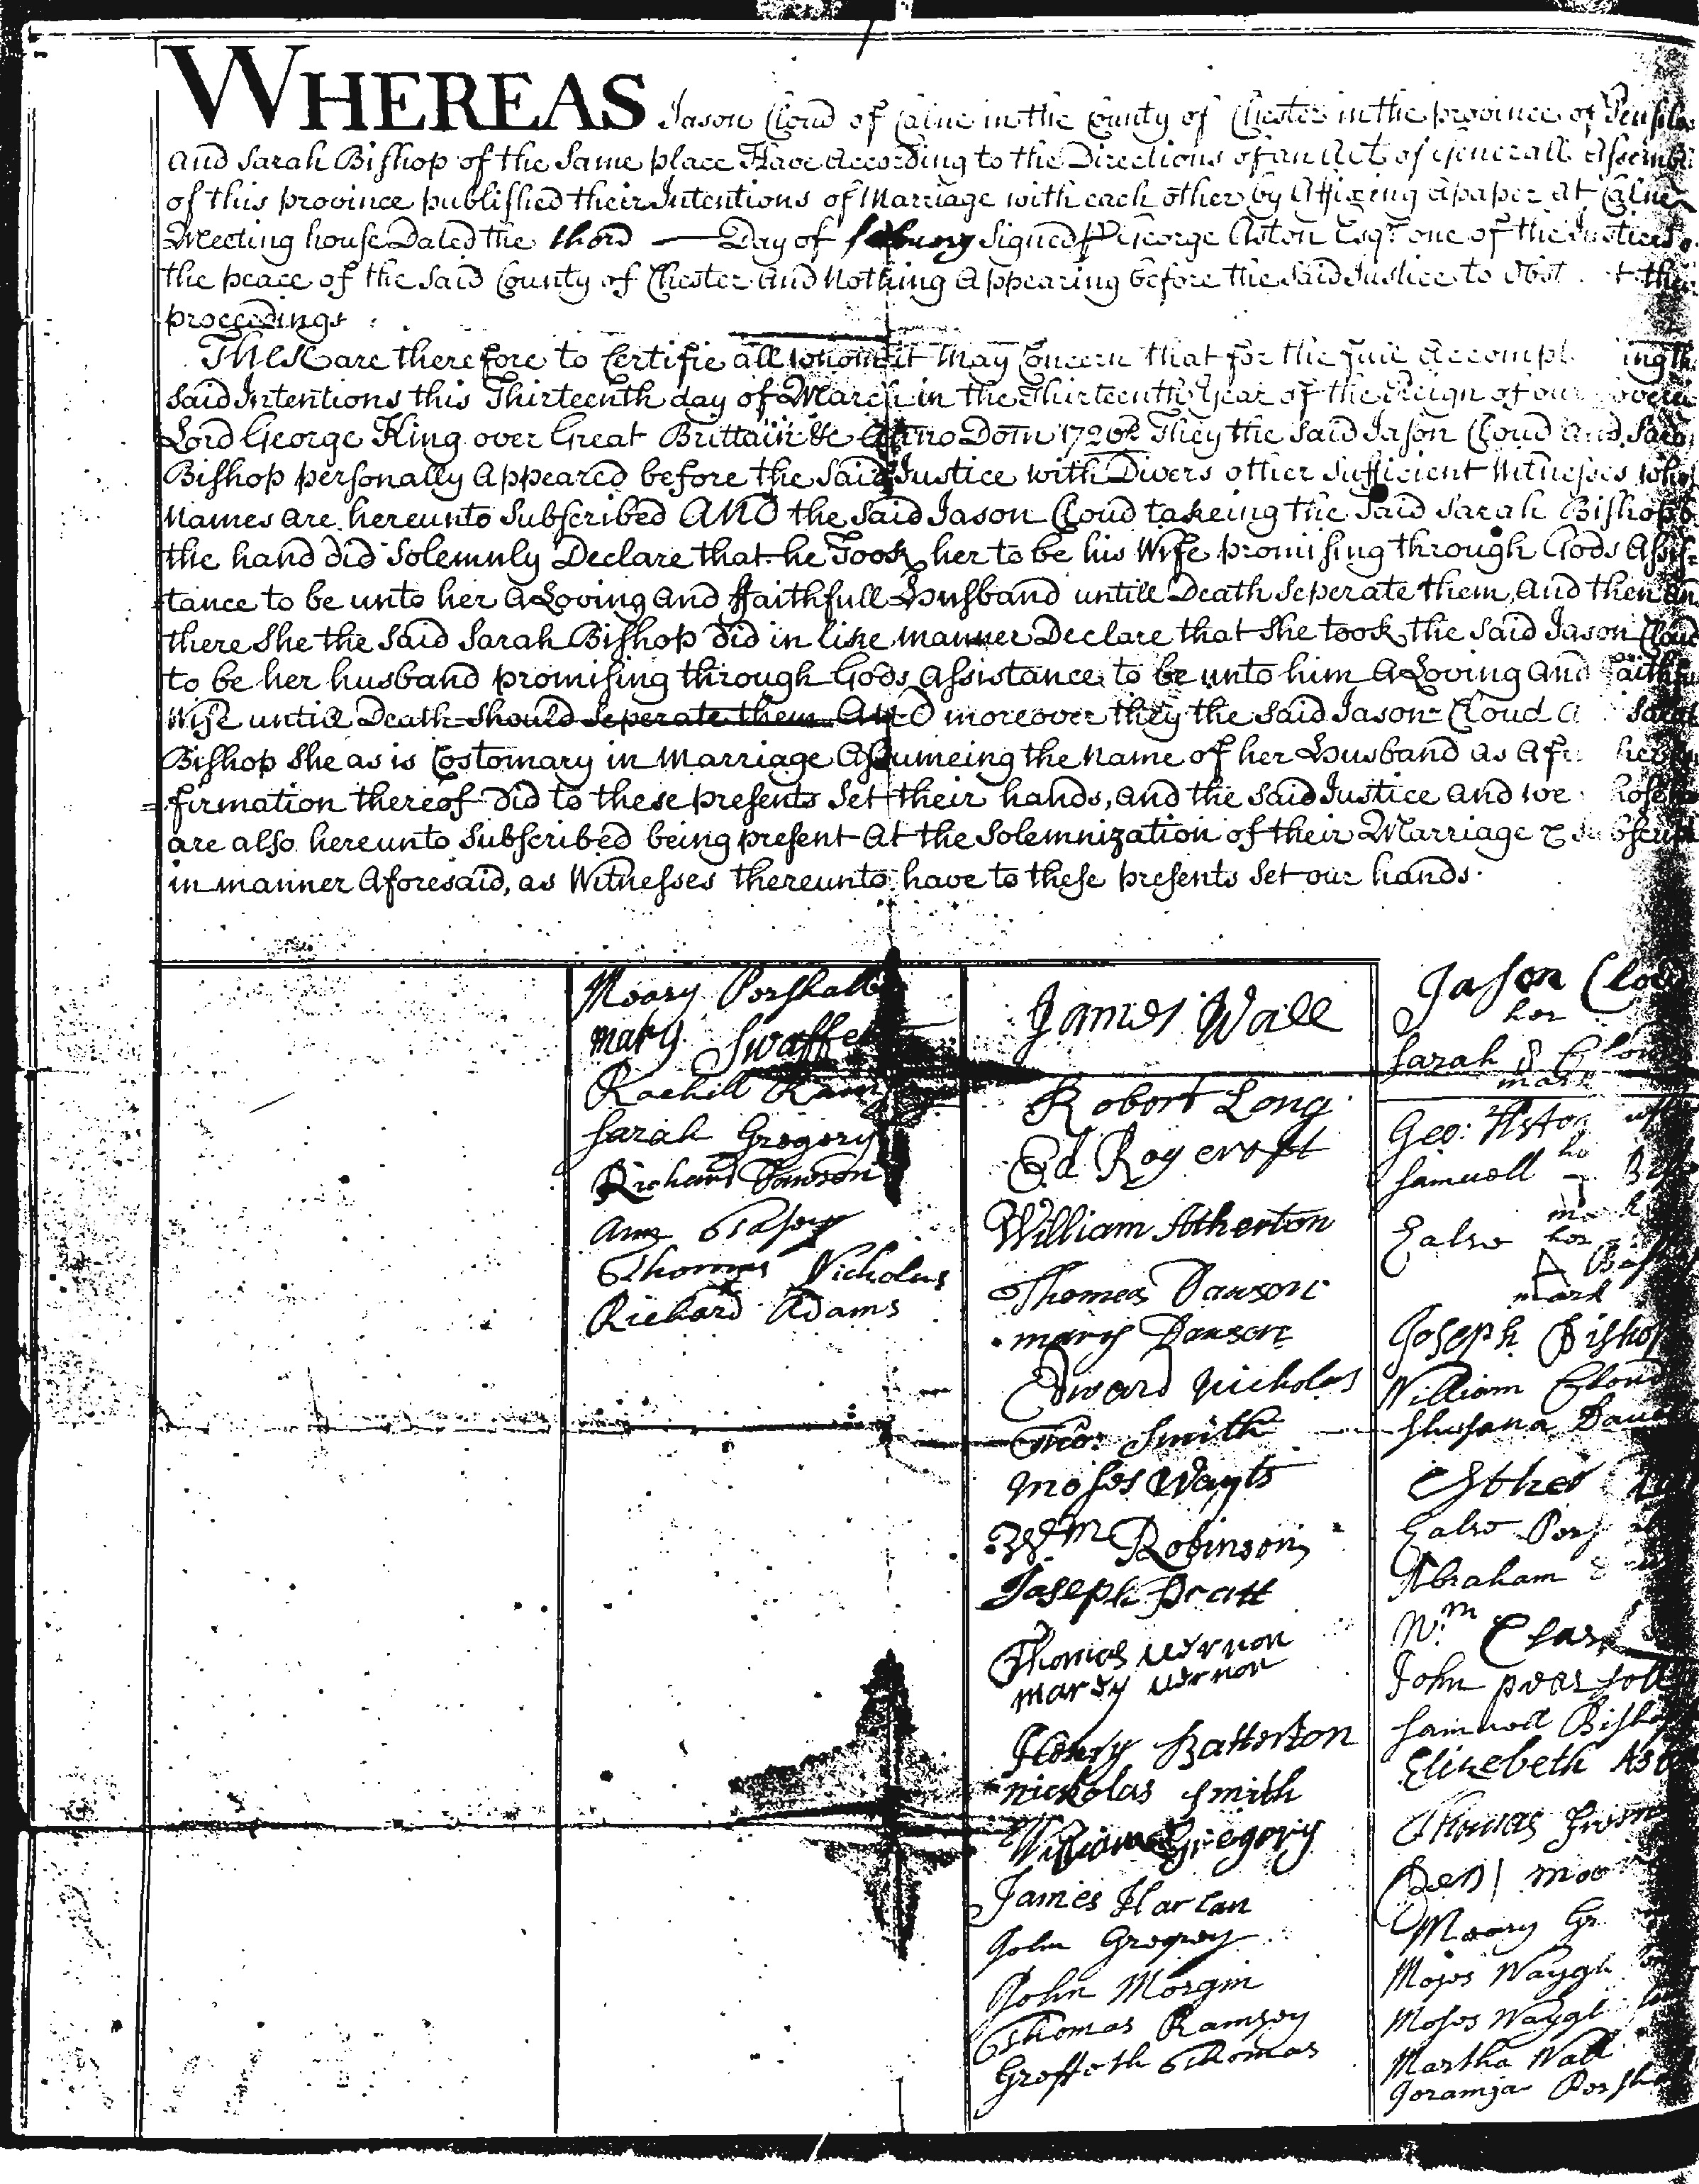 WHEREAS Jason Cloud of Calne in the County of Chester in the province of
and Sarah Bishop of the Same place Have According to the Directions of an Act of Generall
of this province published their Intentions of Marriage with each other by Affixing a paper at Calne
Meeting house Dated the third Day of Signed P George Aston Esqr. one of the Justices
the peace of the Said County of Chester And Nothing Appearing before the Said Justice to
proceedings
THESE are therefore to Certifie all whom it May Concern that for the full
Said Intentions this Thirteenth day of March in the Thirteenth Year of the Reign of our
Lord George King over Great Brittain &c Anno Dom They the Said Jason Cloud and Sara
Bishop personally Appeared before the Said Justice with Divers other Sufficient Witnesses who
Names are hereunto Subscribed AND the Said Jason Cloud takeing the Said Sarah Bishop
the hand did Solemnly Declare that he Took her to be his Wife promising through Gods Assis
tance to be unto her A Loving and ffaithfull Husband untill Death Seperate them, And then
there She the Said Sarah Bishop did in like manner Declare that She took the Said Jason Cloud
to be her husband promising through Gods Assistance to be unto him A Loving and
Wife untill Death Should Seperate them AND moreover they the Said Jason Cloud Sarah
Bishop She as is Costomary in Marriage Assumeing the Name of her Husband as A
firmation thereof Did to these presents Set their hands, and the Said Justice and we
are also hereunto Subscribed being present at the Solemnization of their Marriage &
in manner Aforesaid, as Witnesses thereunto have to these presents Set our hands.
Moary Pershall
mary Swaffer
Rachill
Sarah Gregory
Richard Dawson
Ann
Thomas Nicholas
Richard Adams
James Wall
Robort Long
Ed Roycroft
William Atherton
Thomas Dawson
mary Dawson
Edward Nicholas
Tho: Smith
Moses Wayts
Wm Robinson
Joseph Pratt
Thomas vernon
mary vernon
Henry Batterton
nickolas Smith
William Gregory
James Harlan
John Gregory
John Morgin
Thomas Ramsey
Groffeth Thomas
Jason
her
Sarah S
mark
Geo: Aston
Samuell
Ealso her
A
mark
Joseph Bishop
William Cloud
Shusana
Esther
Ealso
Abraham
Wm
John
Samuell
Elizebeth
Thomas
Benj
Moary
Moses
Moses
Martha Wall
Joramia